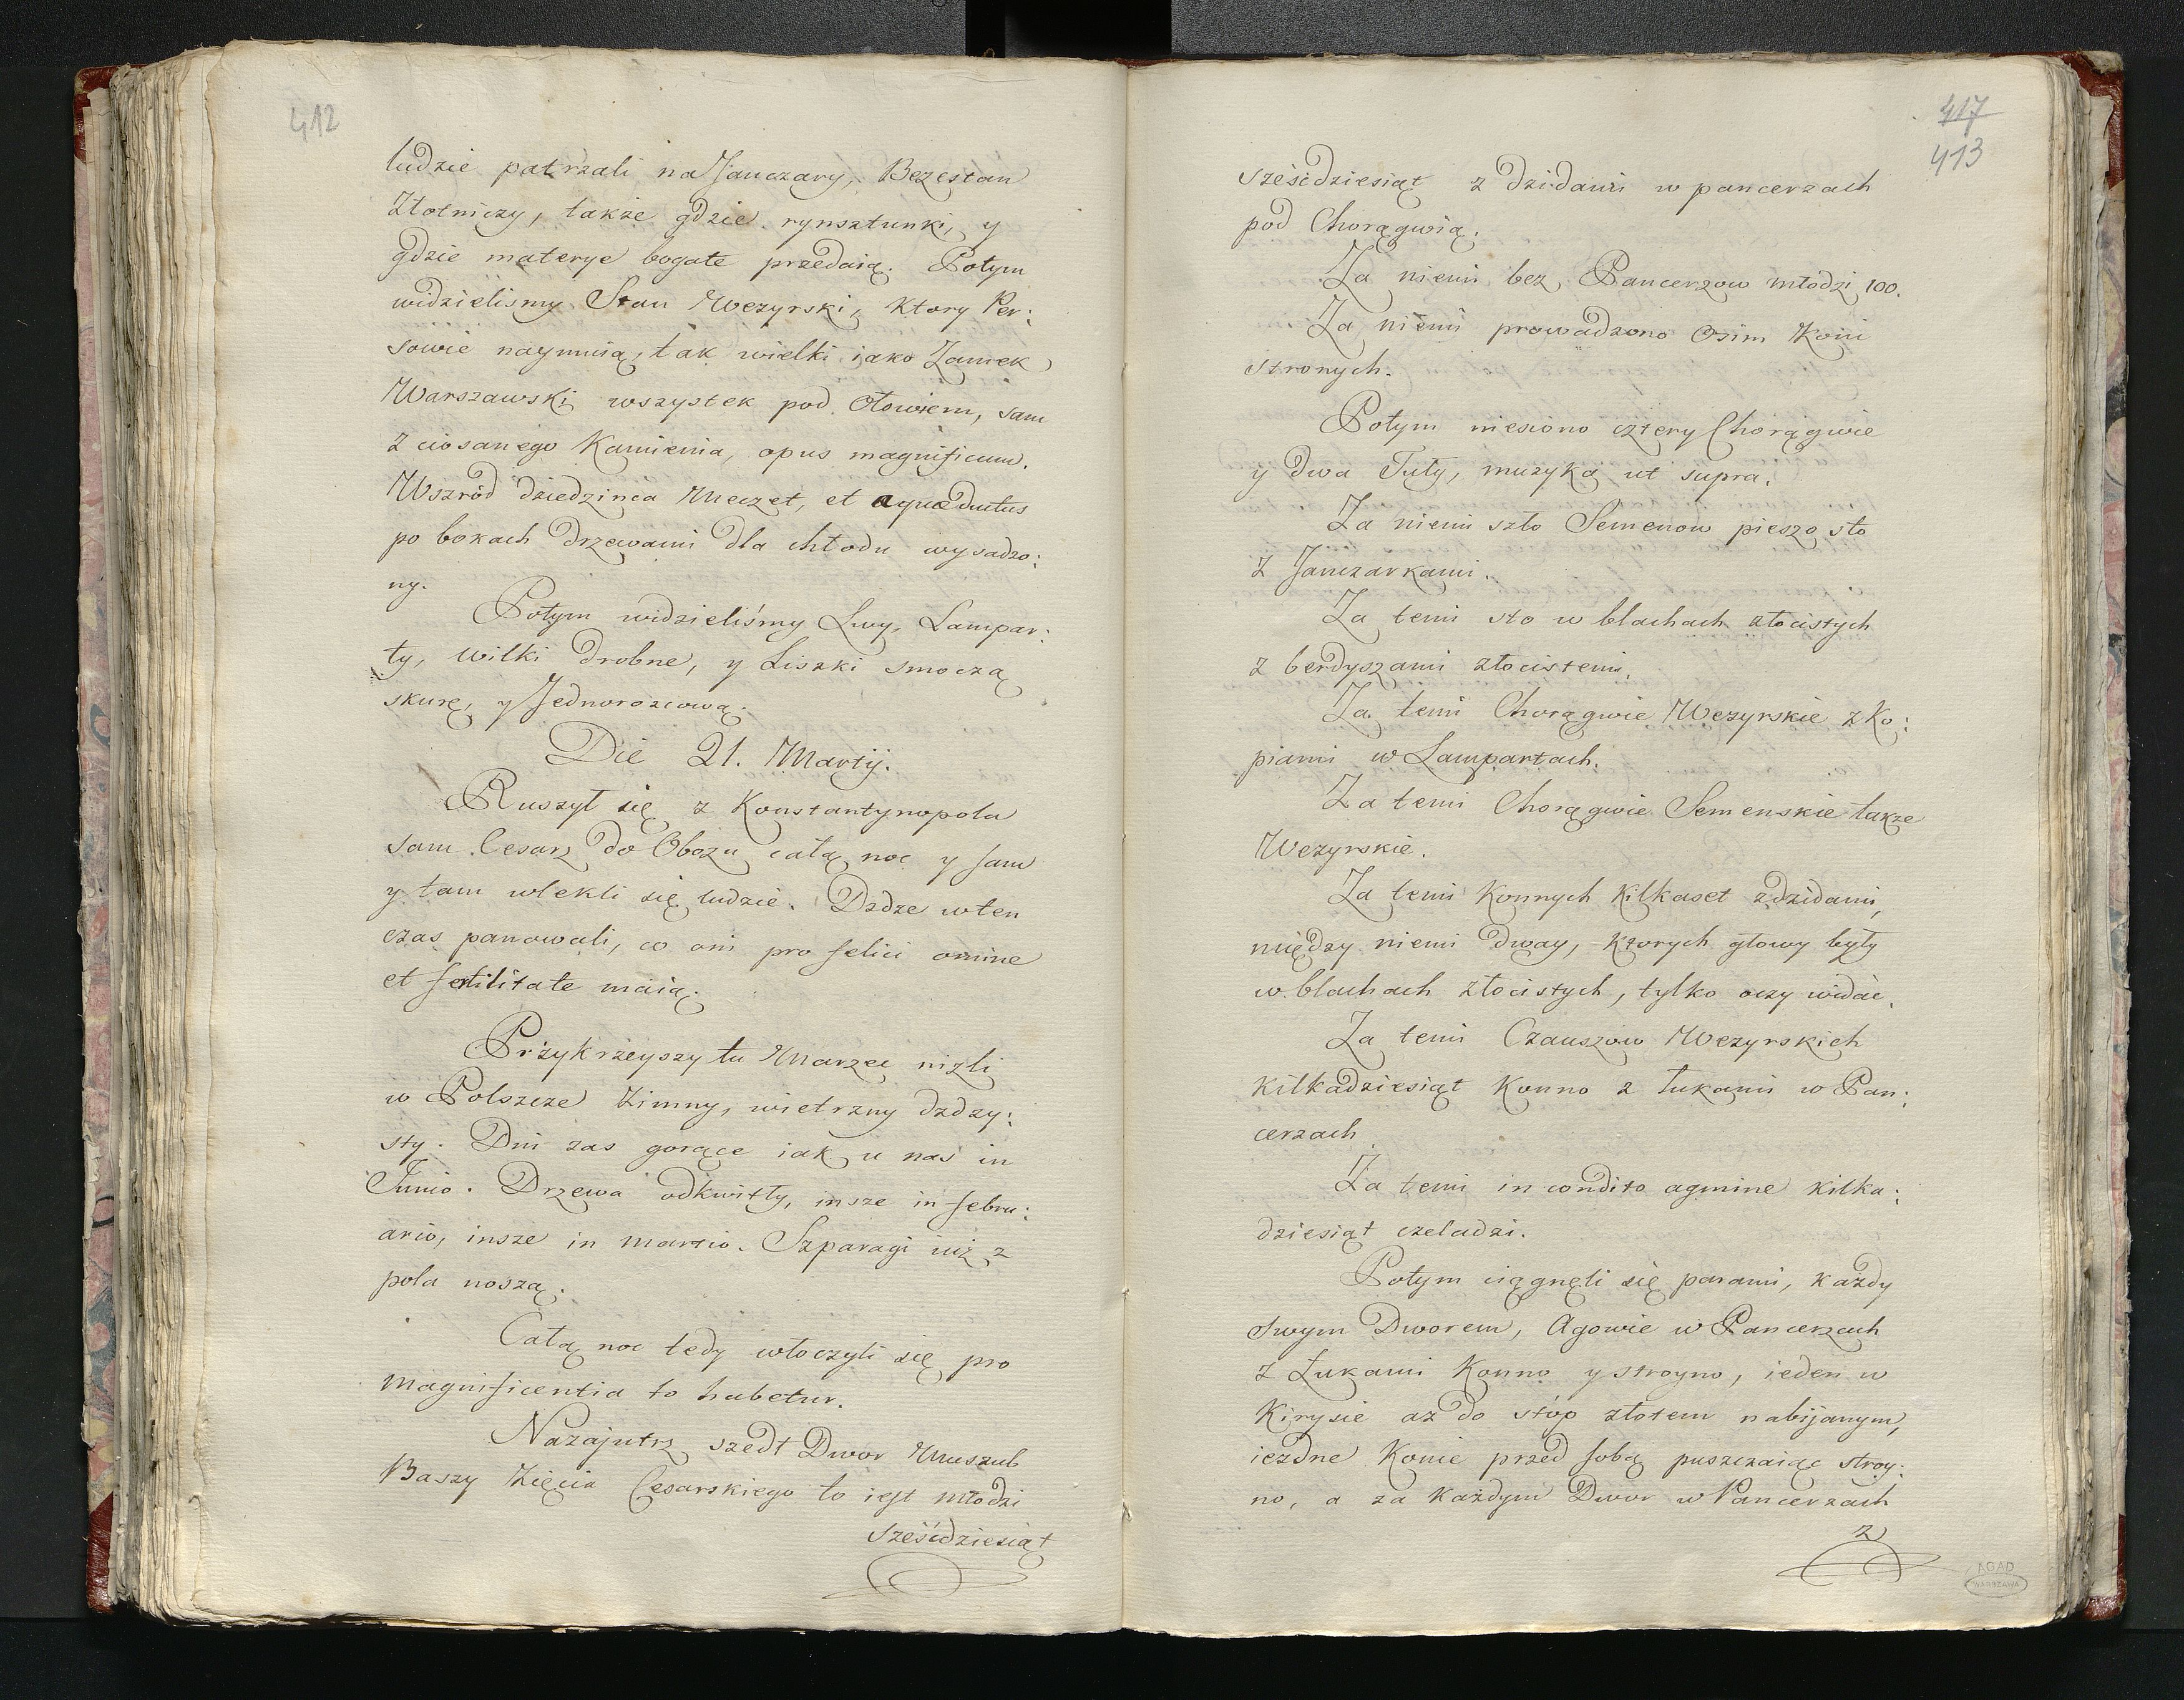 412
ludzie patrzali na Janczary, Bezestan
Złotniczy, także gdzie rynsztunki, y
gdzie materye bogate przedaią. Potym
widzielismy Stan Wezyrski, ktory Per:
sowie naymuią, tak wielki iako Zamek
Warszawski wszystek pod Ołowiem, sam
z ciosanego Kamienia, opus magnificum.
Wszród dziedzinca Meczet, et aquæductus
po bokach drzewami dla chłodu wysadzo:
ny.
Potym widzieliśmy Lwy, Lampar:
ty, wilki drobne, y Liszki smoczą
skurę, y Jednorożcową.
Die 21. Martij.
Ruszył się z Konstantynopola
sam Cesarz do Obozu całą noc y sam
y tam wlekli się ludzie. Dżdże wten
czas panowali, co oni pro felici omine
et fertilitate maią.
Przykrzeyszy tu Marzec niżli
w Polszcze zimny, wietrzny dżdży:
sty. Dni zas gorące iak u nas in
Junio. Drzewa odkwitły, insze in febru:
ario, insze in martio. Szparagi iuż z
pola noszą.
Całą noc tedy włoczyli się pro
magnificentia to habetur.
Nazajutrz szedł Dwor Muszub
Baszy Zięcia Cesarskiego to iest młodzi
sześćdziesiąt
417
413
sześćdziesiąt z dzidami w pancerzach
pod Chorągwią.
Za niemi bez Pancerzow młodzi 100.
Za niemi prowadzono Osim Koni
stronych.
Potym niesiono cztery Chorągwie
y dwa Tuły, muzyka ut supra.
Za niemi szło Semenow pieszo sto
z Janczarkami.
Za temi sto w blachach złocistych
z berdyszami złocistemi.
Za temi Chorągwie Wezyrskie z Ko:
piami w Lampartach.
Za temi Chorągwie Semenskie także
Wezyrskie.
Za temi Konnych kilkaset z dzidami,
między niemi dway, ktorych głowy były
w blachach złocistych, tylko oczy widać.
Za temi Czauszow Wezyrskich
kilkadziesiąt Konno z łukami w Pan:
cerzach.
Za temi in condito agmine kilka:
dziesiąt czeladzi.
Potym ciągnęli się parami, każdy
swym Dworem, Agowie w Pancerzach
z Łukami Konno y stroyno, ieden w
Kirysie aż do stóp złotem nabijanym,
iezdne Konie przed sobą puszczaiąc stroy:
no, a za każdym Dwor w Pancerzach
z
AGAD
WARSZAWA